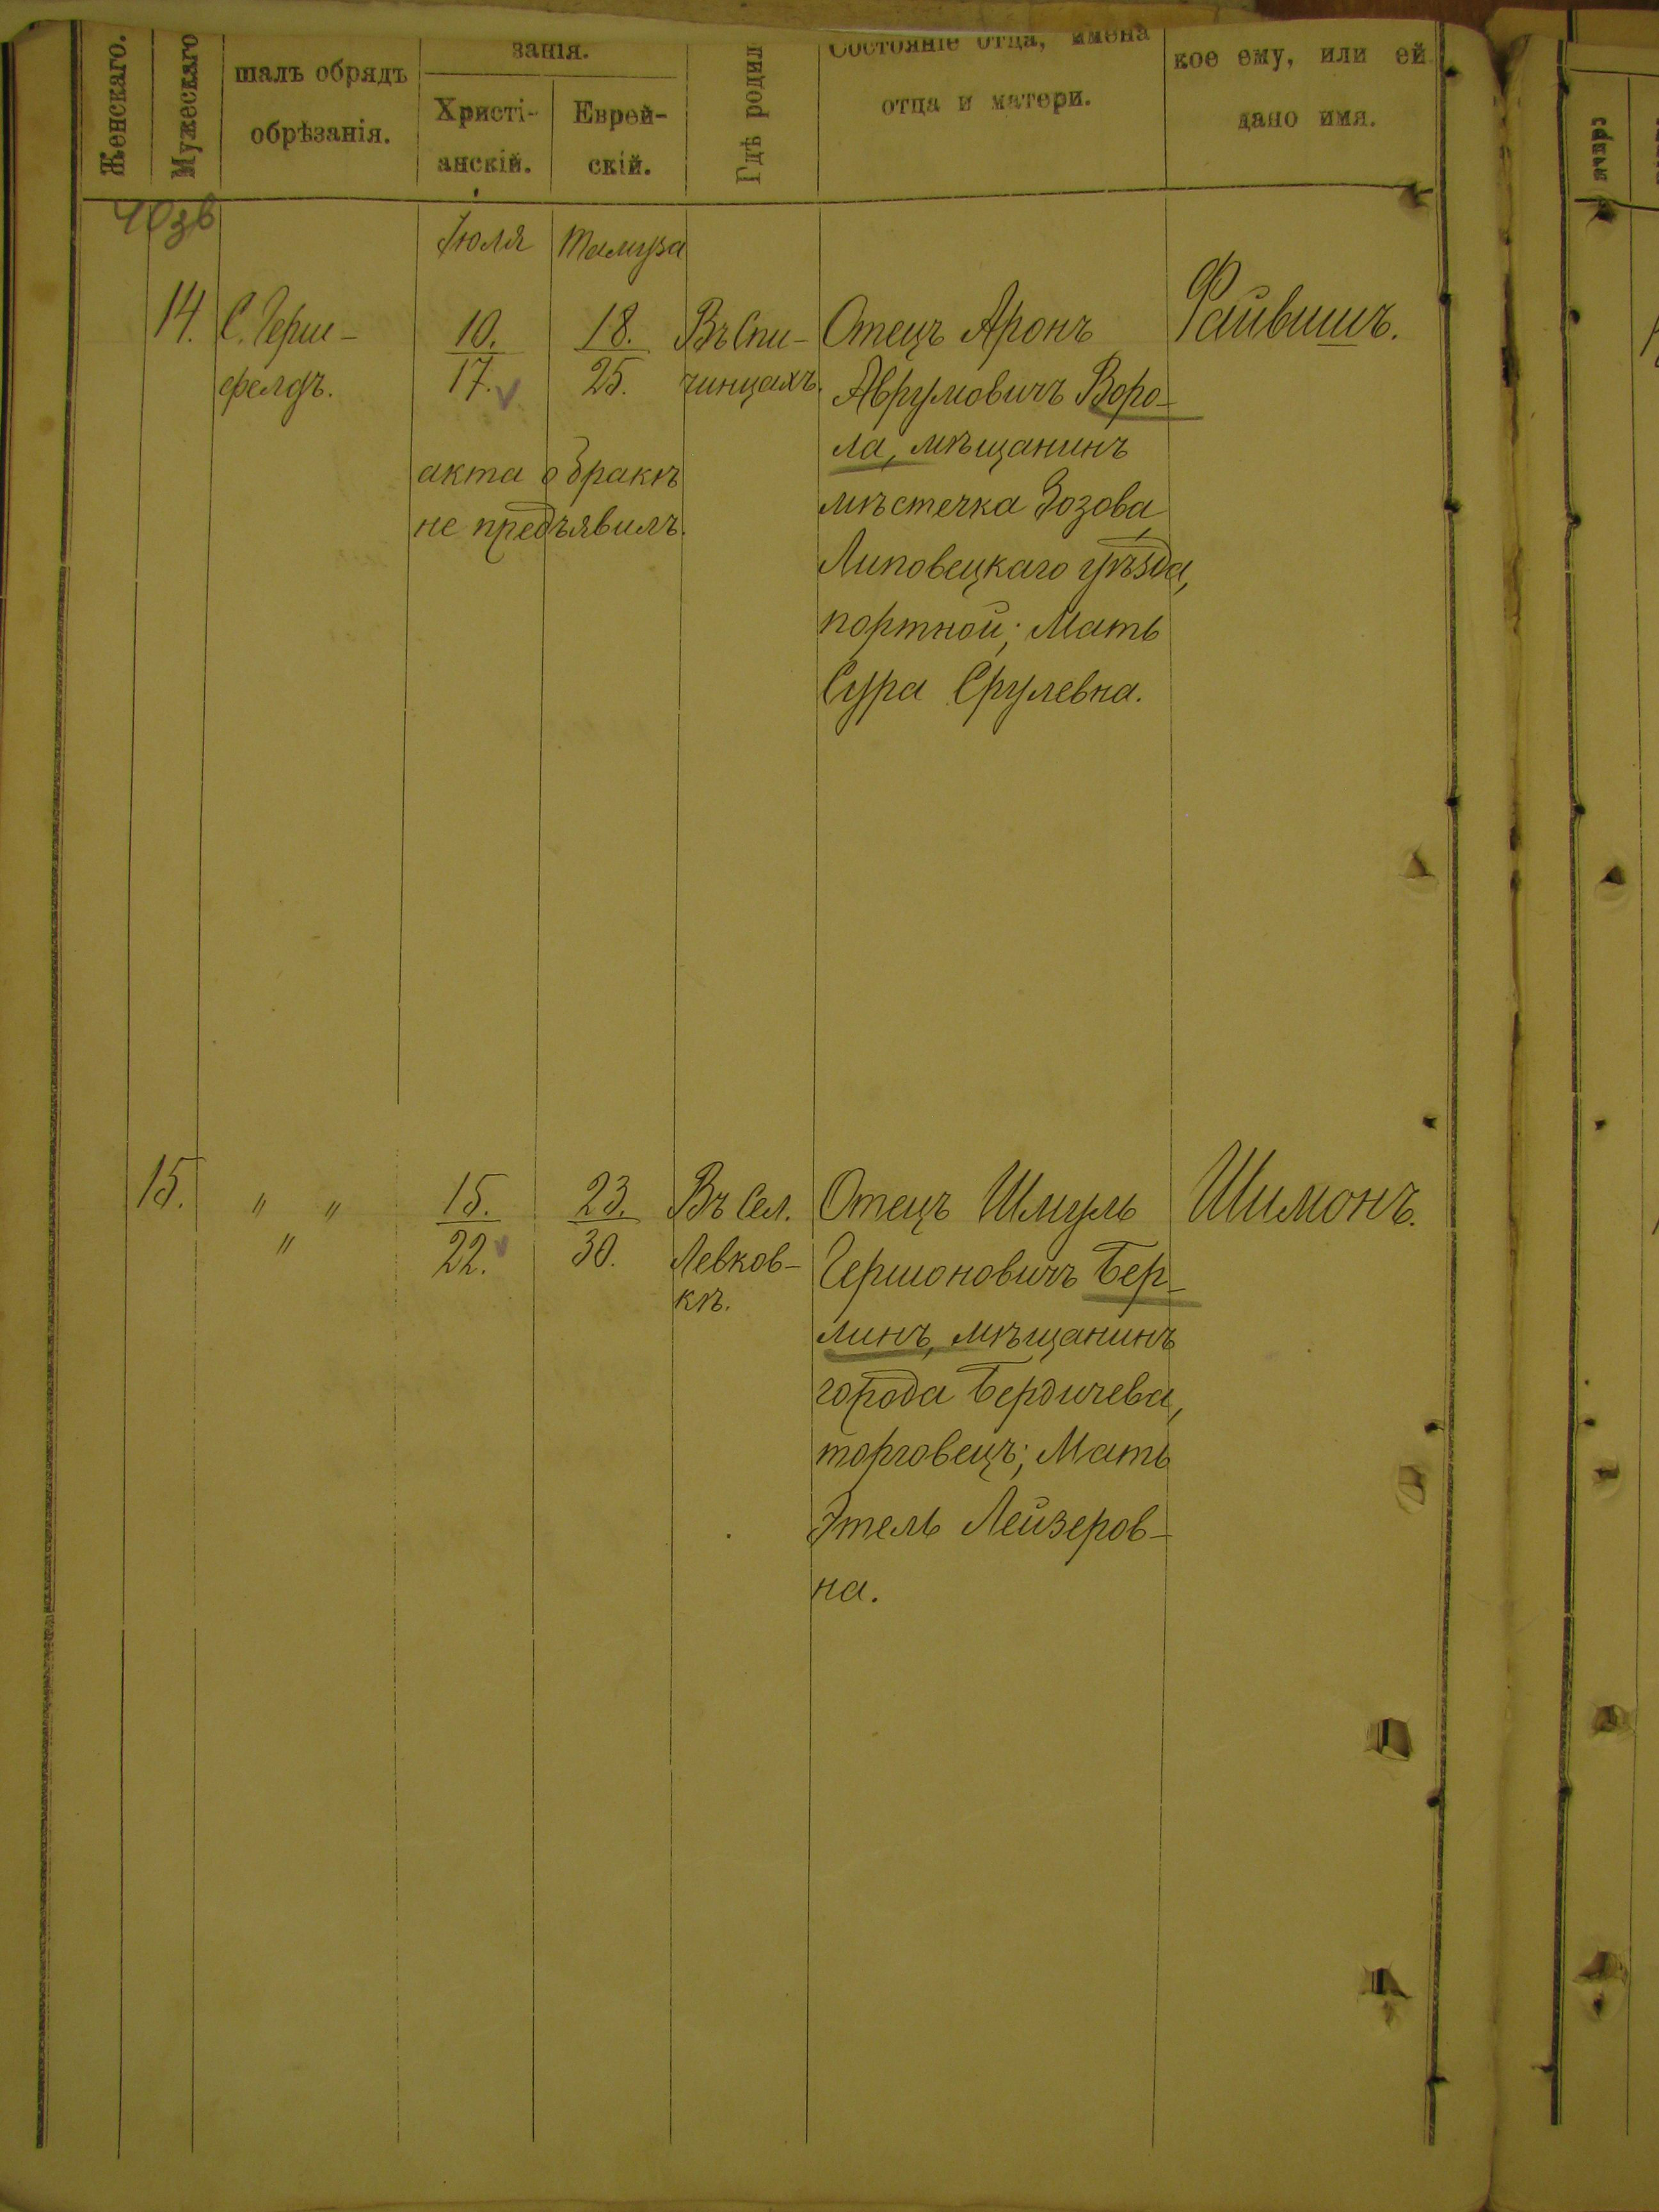 Женскаго.
Мужескаго
шалъ обрядъ
обрѣзанія.
занія.
Христі-
анскій.
Еврей-
скій.
Гдѣ родил
Состояніе отца, имена
отца и матери.
кое ему, или ей
дано имя.
40зв
Іюля Тамуза
14. С. Герш-
фелдъ.
10.
17.
18.
25.
Въ Спи-
чинцахъ.
акта о бракѣ
не предъявилъ.
Отецъ Аронъ
Аврумовичъ Воро-
ла, мѣщанинъ
мѣстечка Зозова,
Липовецкаго уѣзда,
портной; Мать
Сура Срулевна.
Файвишъ.
15. " "
"
15.
22.
23.
30.
Въ Сел.
Левков-
кѣ.
Отецъ Шмуль
Гершоновичъ Бер-
линъ, мѣщанинъ
города Бердичева,
торговецъ; Мать
Этель Лейзеров-
на.
Шимонъ.